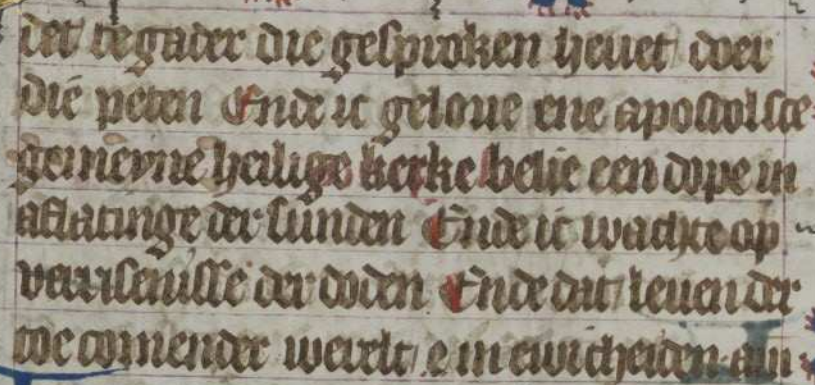 det te gader die gesproken heuet doer
die peten Ende ic geloue ene apostolsce
gemeyne heilige kerke belie een dope in
aflatinge der sunden Ende ic wachte op
verrisenisse der doden Ende dat leuen der
toe comender werelt in ewicheiden am